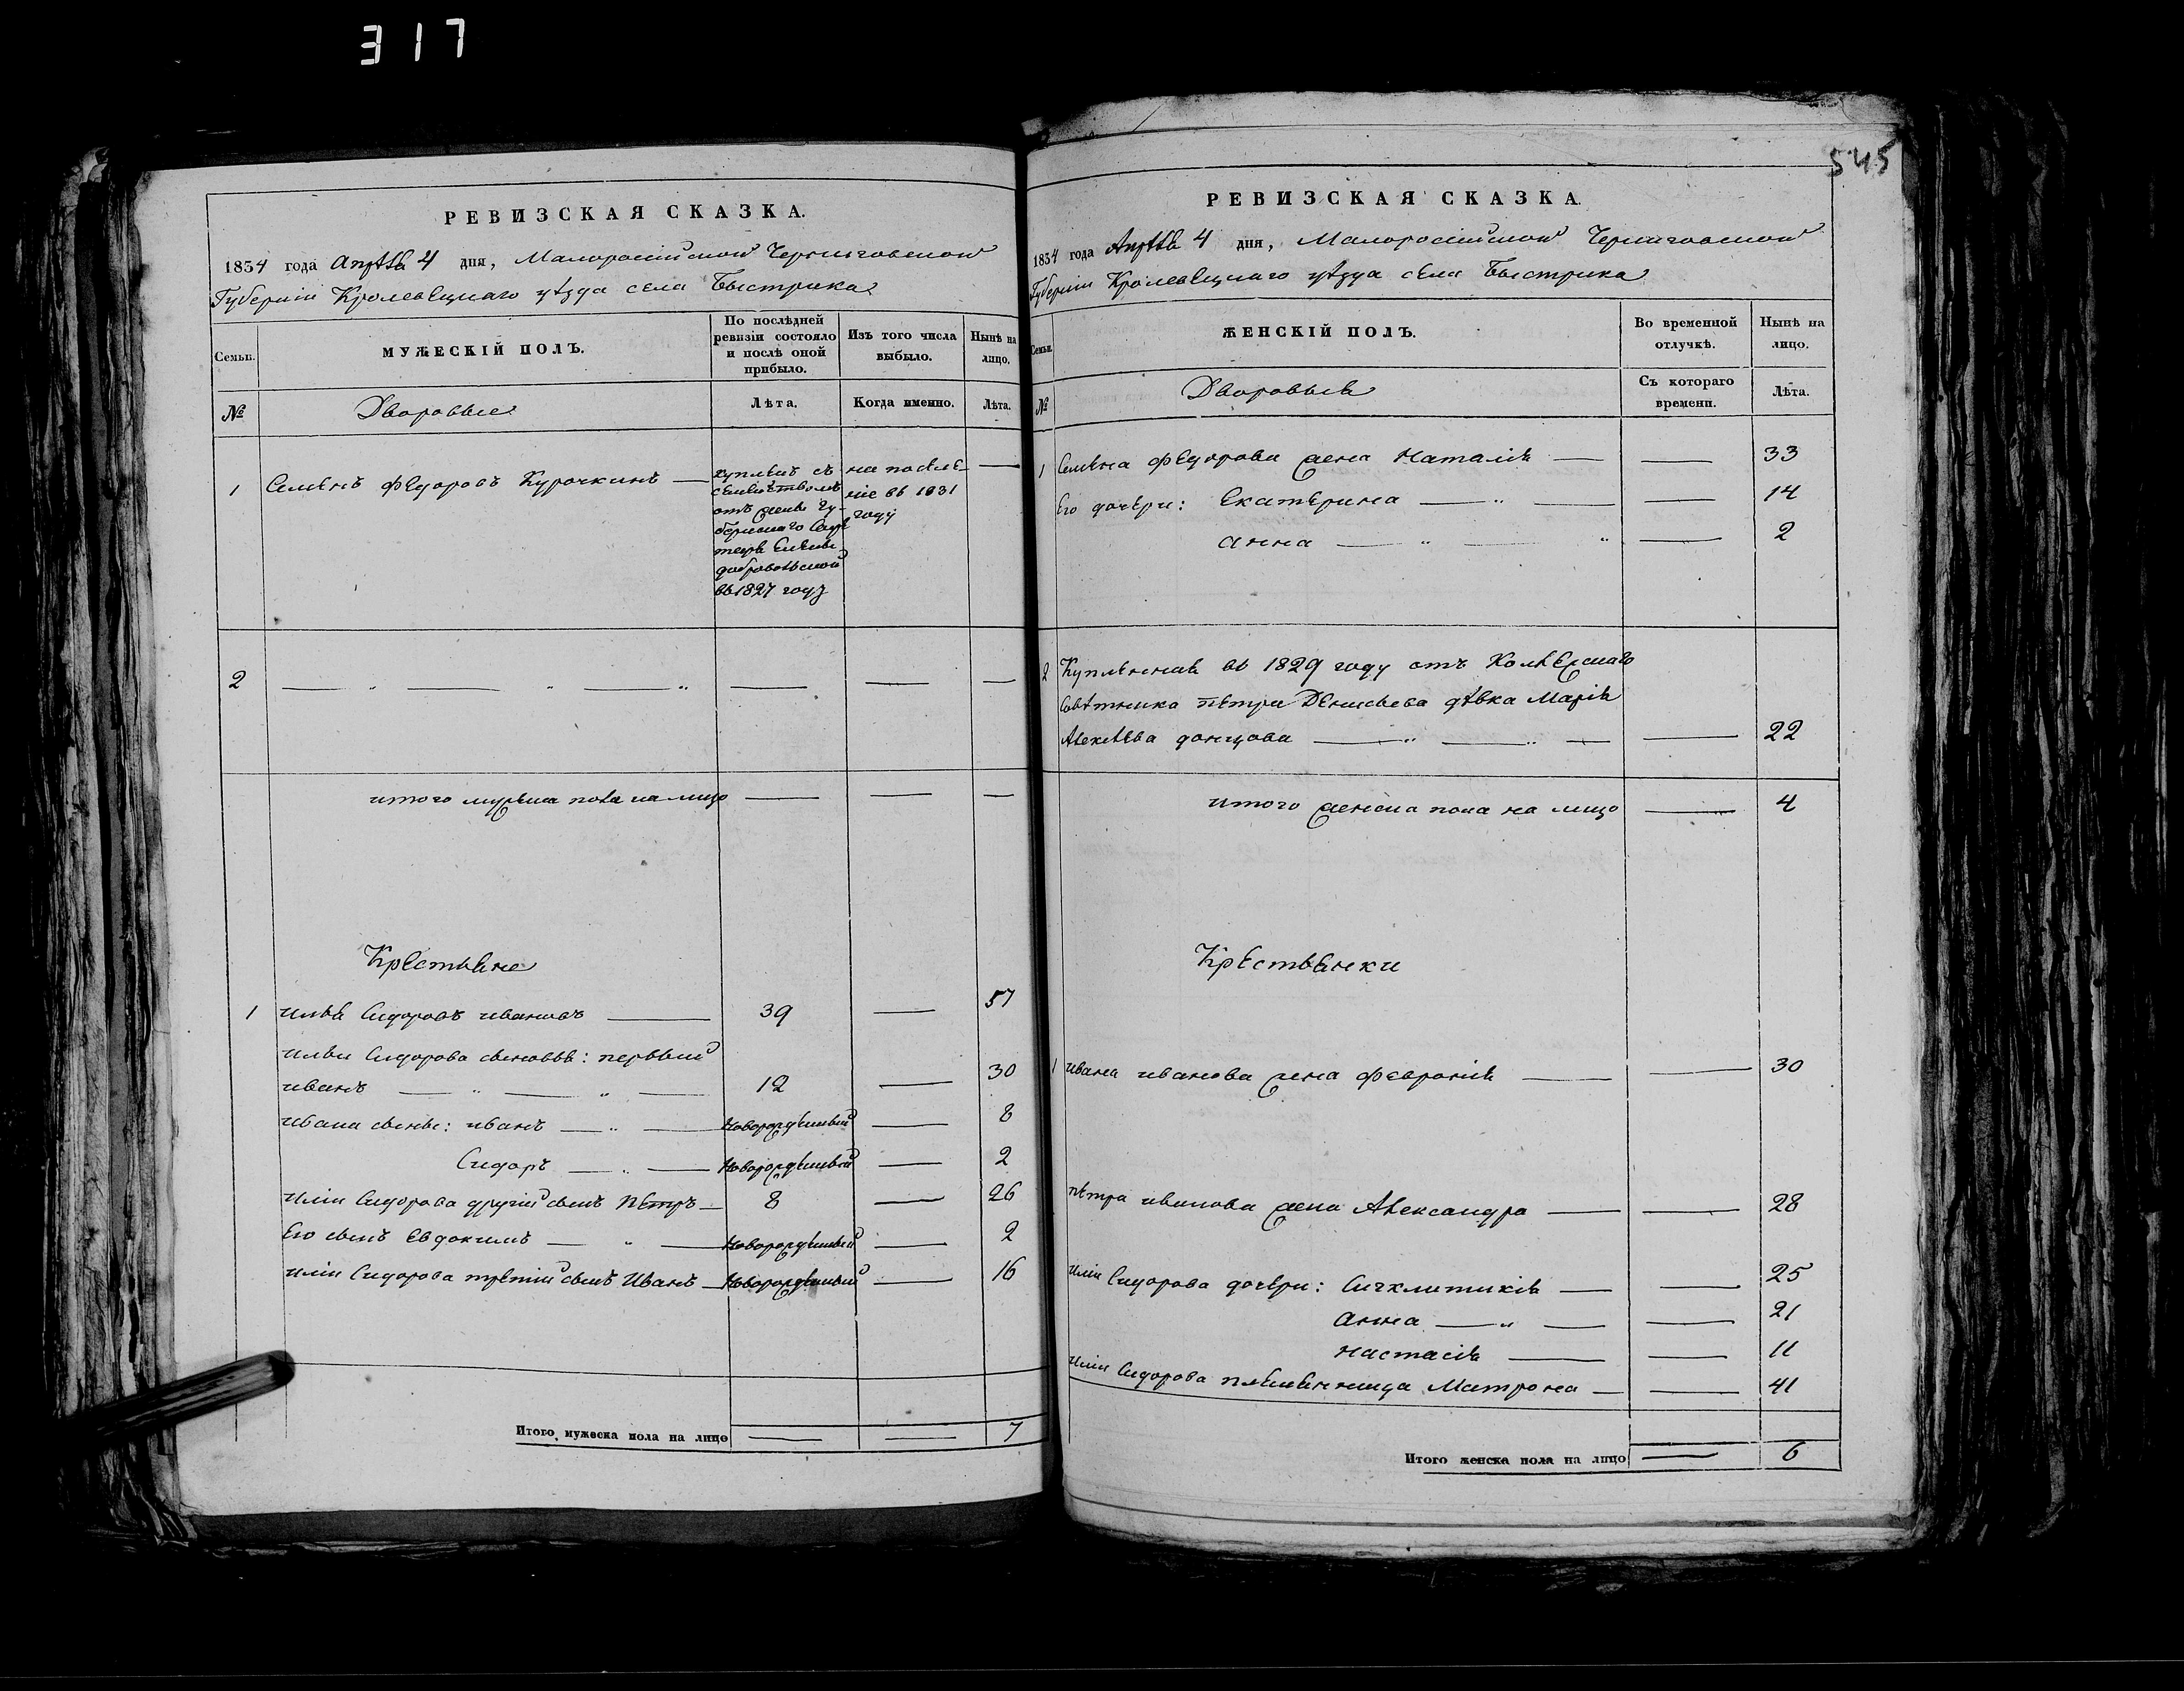 317
РЕВИЗСКАЯ СКАЗКА.
1834 года Апрѣля 4 дня, Малоросiйской Черниговской
Губернiи Кролевецкаго уѣзда села Быстрика
Семьи.
МУЖЕСКIЙ ПОЛЪ.
По послѣдней ревизiи состояло и послѣ оной прибыло.
Изъ того числа выбыло.
Нынѣ на лицо.
№
Дворовые
Лѣта.
Когда именно.
Лѣта.
1 Семенъ Федоровъ Курочкинъ —
купленъ съ
семействомъ
отъ жены Гу-
бернскаго Секре
таря Елены
добровольской
въ 1827 году
на поселе-
нiе въ 1831
году
—
2 — " — " — " — — —
итого мужеска пола на лицо — — —
Крестьяне
1 Илья Сидоровъ Ивановъ — 39 — 57
Ильи Сидорова сыновья: первый
Иванъ — " — " — 12 — 30
Ивана сыны: Иванъ — " — Новорожденный — 8
Сидоръ — " — Новорожденный — 2
Илiи Сидорова другiй сынъ Петръ — 8 — 26
Его сынъ Евдокимъ — " — Новорожденный — 2
Илiи Сидорова третiй сынъ Иванъ — Новорожденный — 16
Итого мужеска пола на лицо — — 7
545
РЕВИЗСКАЯ СКАЗКА.
1834 года Апрѣля 4 дня, Малоросiйской Черниговской
Губернiи Кролевецкаго уѣзда села Быстрика
Семьи.
ЖЕНСКIЙ ПОЛЪ.
Во временной отлучкѣ.
Нынѣ на лицо.
№
Дворовыя
Съ котораго времени.
Лѣта.
1 Семена Федорова жена Наталiя — — 33
Его дочери: Екатерина — " — — 14
Анна — " — " — 2
2 Купленная въ 1829 году отъ Колежскаго
Совѣтника Петра Денисьева дѣвка Марiя
Алексѣева донцова — " — " — — 22
итого женска пола на лицо — 4
Крестьянки
1 Ивана Иванова жена Февронiя — — 30
Петра Иванова жена Александра — — 28
Илiи Сидорова дочери: Сичклитикiя — — 25
Анна — " — — 21
Настасiя — — 11
Илiи Сидорова племянница Матрона — — 41
Итого женска пола на лицо — 6